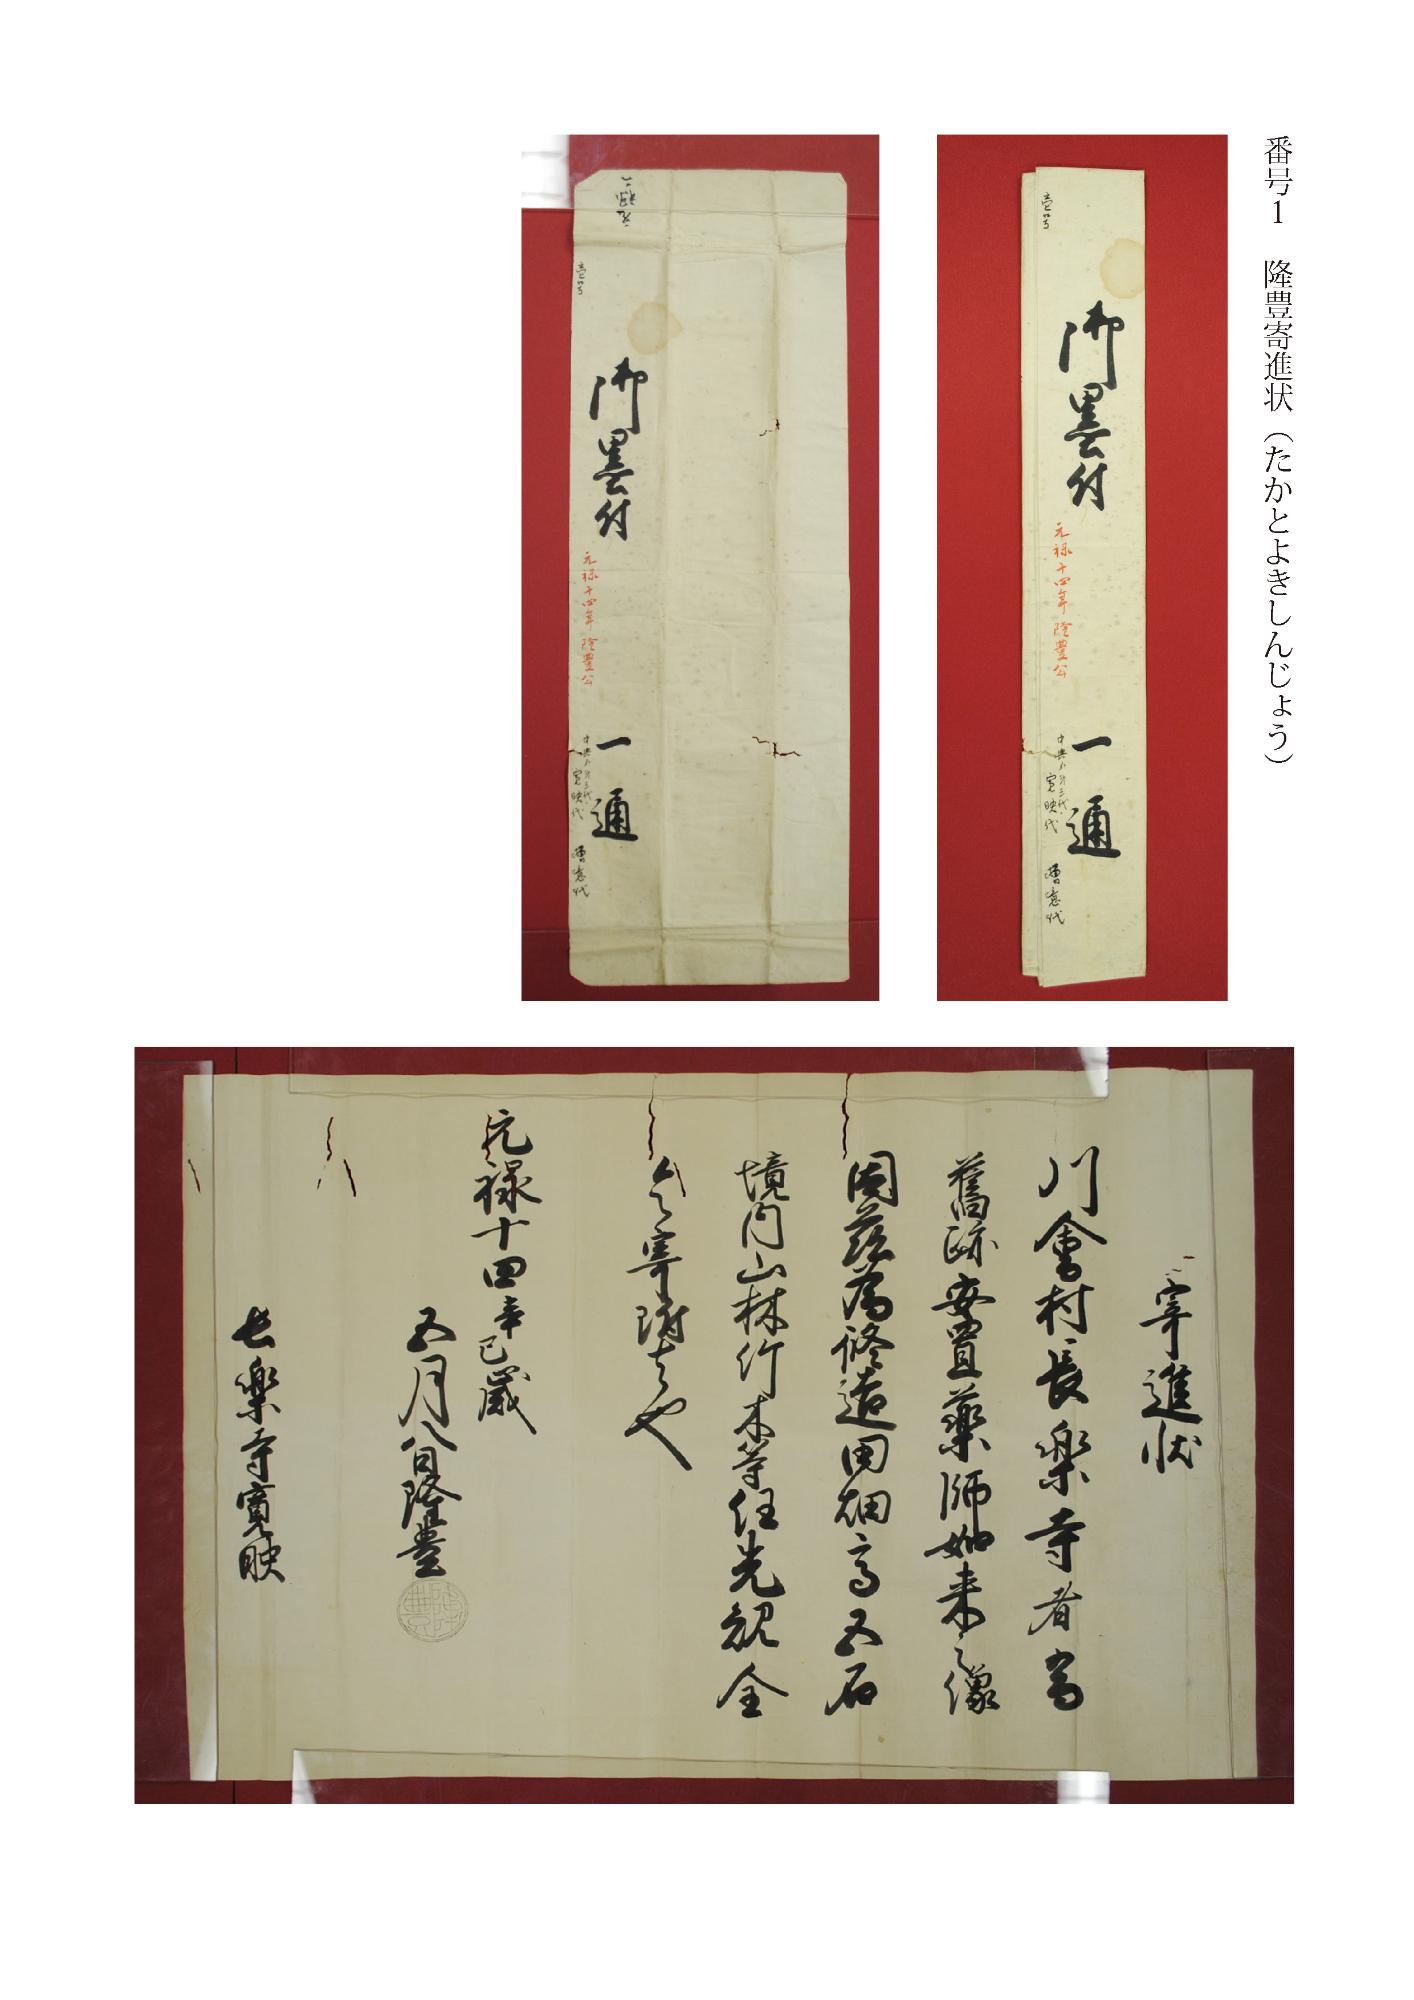 番号1 隆豊寄進状（たかとよきしんじょう）
壱号
御墨付
元禄十四年 隆豊公
一通
寛映代
御墨付
壱号
元禄十四年 隆豊公
一通
寛映代
寄進状
川會村長楽寺者當
舊跡安置薬師如来之像
因茲為修造田畑高五石
境内山林竹木等任先規全
令寄附者也
元禄十四辛巳歳
五月八日隆豊
長楽寺寛映